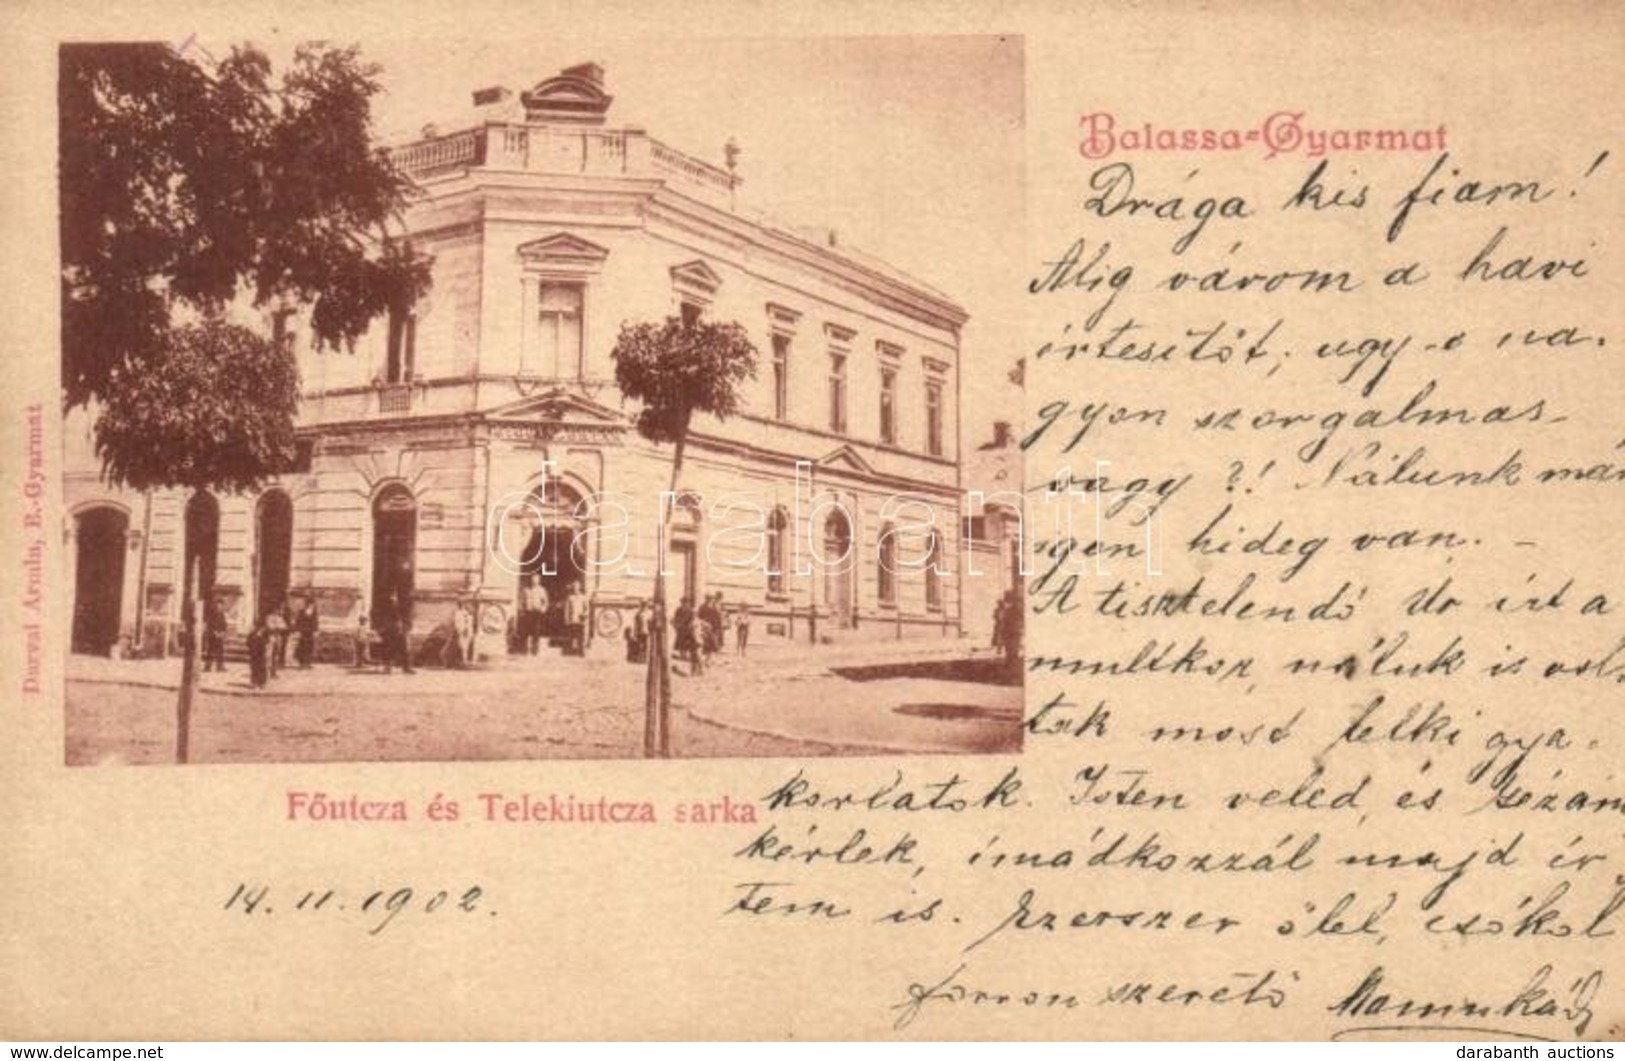 Balassa-Gyarmat
Drága kis fiam!
Alig várom a havi
értesítőt, ugy-e na-
gyon szorgalmas
vagy?! Nálunk már
igen hideg van. -
A tisztelendő Ur írt a
multkor, nálunk is vol-
tak most lelki gya-
korlatok. Isten veled, és
kérlek, imádkozzál majd ér
tem is. Ezerszer ölel, csókol
forron szerető Mamukád
Főutcza és Telekiutcza sarka
14. 11. 1902.
Darvai Ármin, B.-Gyarmat
darabanth
darabanth auctions